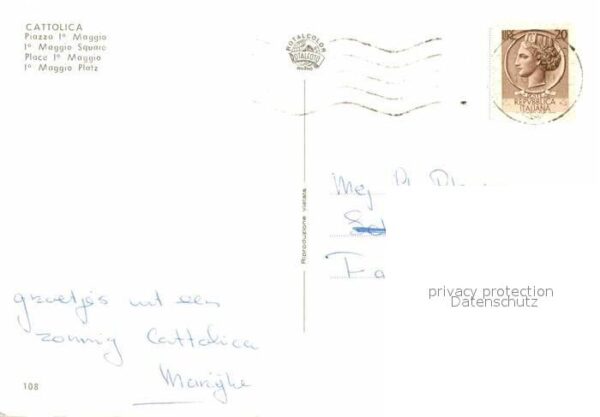 CATTOLICA
Piazza 1º Maggio
1º Maggio Square
Place 1º Maggio
1º Maggio Platz
ROTALCOLOR
ROTALFOTO
MILANO
LIRE 20
REPVBBLICA
ITALIANA
Riproduzione vietata
Mej
privacy protection
Datenschutz
groetjes uit een
zonnig Cattolica
Marijke
108